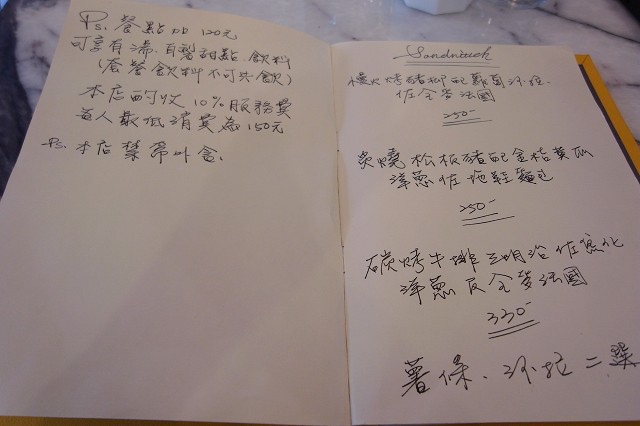 Ps. 餐點加120元
可享有湯.自製甜點.飲料
(套餐飲料不可共飲)
本店酌收10%服務費
每人最低消費為150元
Ps. 本店禁帶外食.
Sandwich
烤豬柳配
佐全麥法國
250-
炭燒松板豬配金桔黃瓜
洋蔥佐拖鞋麵包
250-
碳烤牛排三明治佐焦化
洋蔥及全麥法國
330-
薯條、沙拉二選